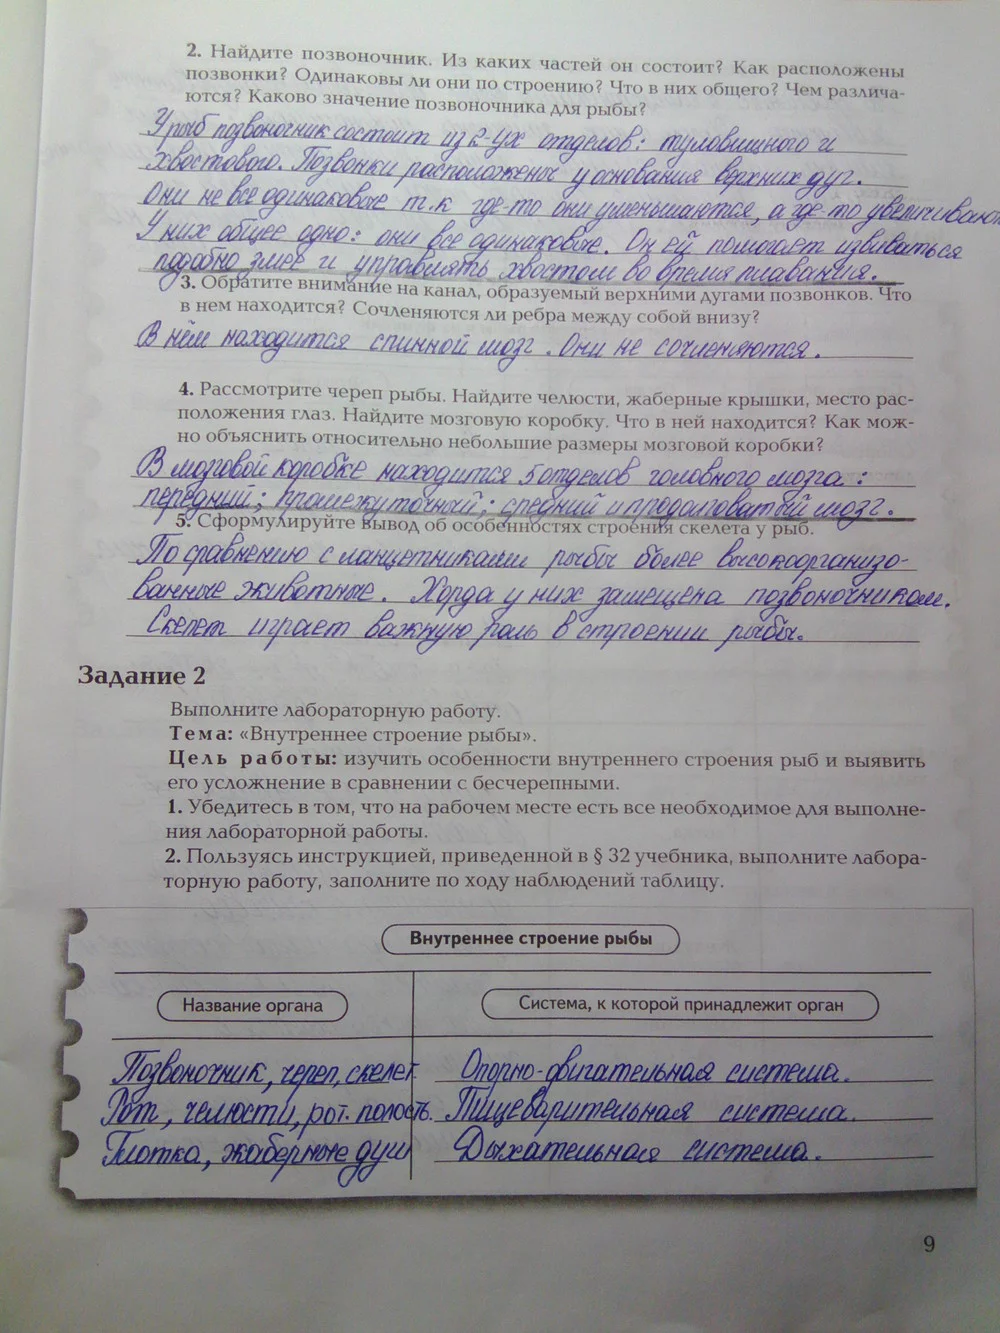 2. Найдите позвоночник. Из каких частей он состоит? Как расположены
позвонки? Одинаковы ли они по строению? Что в них общего? Чем различа-
ются? Каково значение позвоночника для рыбы?
У рыб позвоночник состоит из 2-ух отделов: туловищного и
хвостового. Позвонки расположены у основания верхних дуг.
Они не все одинаковые т.к где-то они уменьшаются, а где-то увеличиваются
У них общее одно: они все одинаковые. Он ей помогает извиваться
подобно змее и управлять хвостом во время плавания.
3. Обратите внимание на канал, образуемый верхними дугами позвонков. Что
в нем находится? Сочленяются ли ребра между собой внизу?
В нём находится спинной мозг. Они не сочленяются.
4. Рассмотрите череп рыбы. Найдите челюсти, жаберные крышки, место рас-
положения глаз. Найдите мозговую коробку. Что в ней находится? Как мож-
но объяснить относительно небольшие размеры мозговой коробки?
В мозговой коробке находится 5 отделов головного мозга:
передний; промежуточный; средний и продолговатый мозг.
5. Сформулируйте вывод об особенностях строения скелета у рыб.
По сравнению с ланцетниками рыбы более высокоорганизо-
ванные животные. Хорда у них замещена позвоночником.
Скелет играет важную роль в строении рыбы.
Задание 2
Выполните лабораторную работу.
Тема: «Внутреннее строение рыбы».
Цель работы: изучить особенности внутреннего строения рыб и выявить
его усложнение в сравнении с бесчерепными.
1. Убедитесь в том, что на рабочем месте есть все необходимое для выполне-
ния лабораторной работы.
2. Пользуясь инструкцией, приведенной в § 32 учебника, выполните лабора-
торную работу, заполните по ходу наблюдений таблицу.
Внутреннее строение рыбы
Название органа
Система, к которой принадлежит орган
Позвоночник, череп, скелет. Опорно-двигательная система.
Рот, челюсти, рот. полость. Пищеварительная система.
Глотка, жаберные дуги Дыхательная система.
9